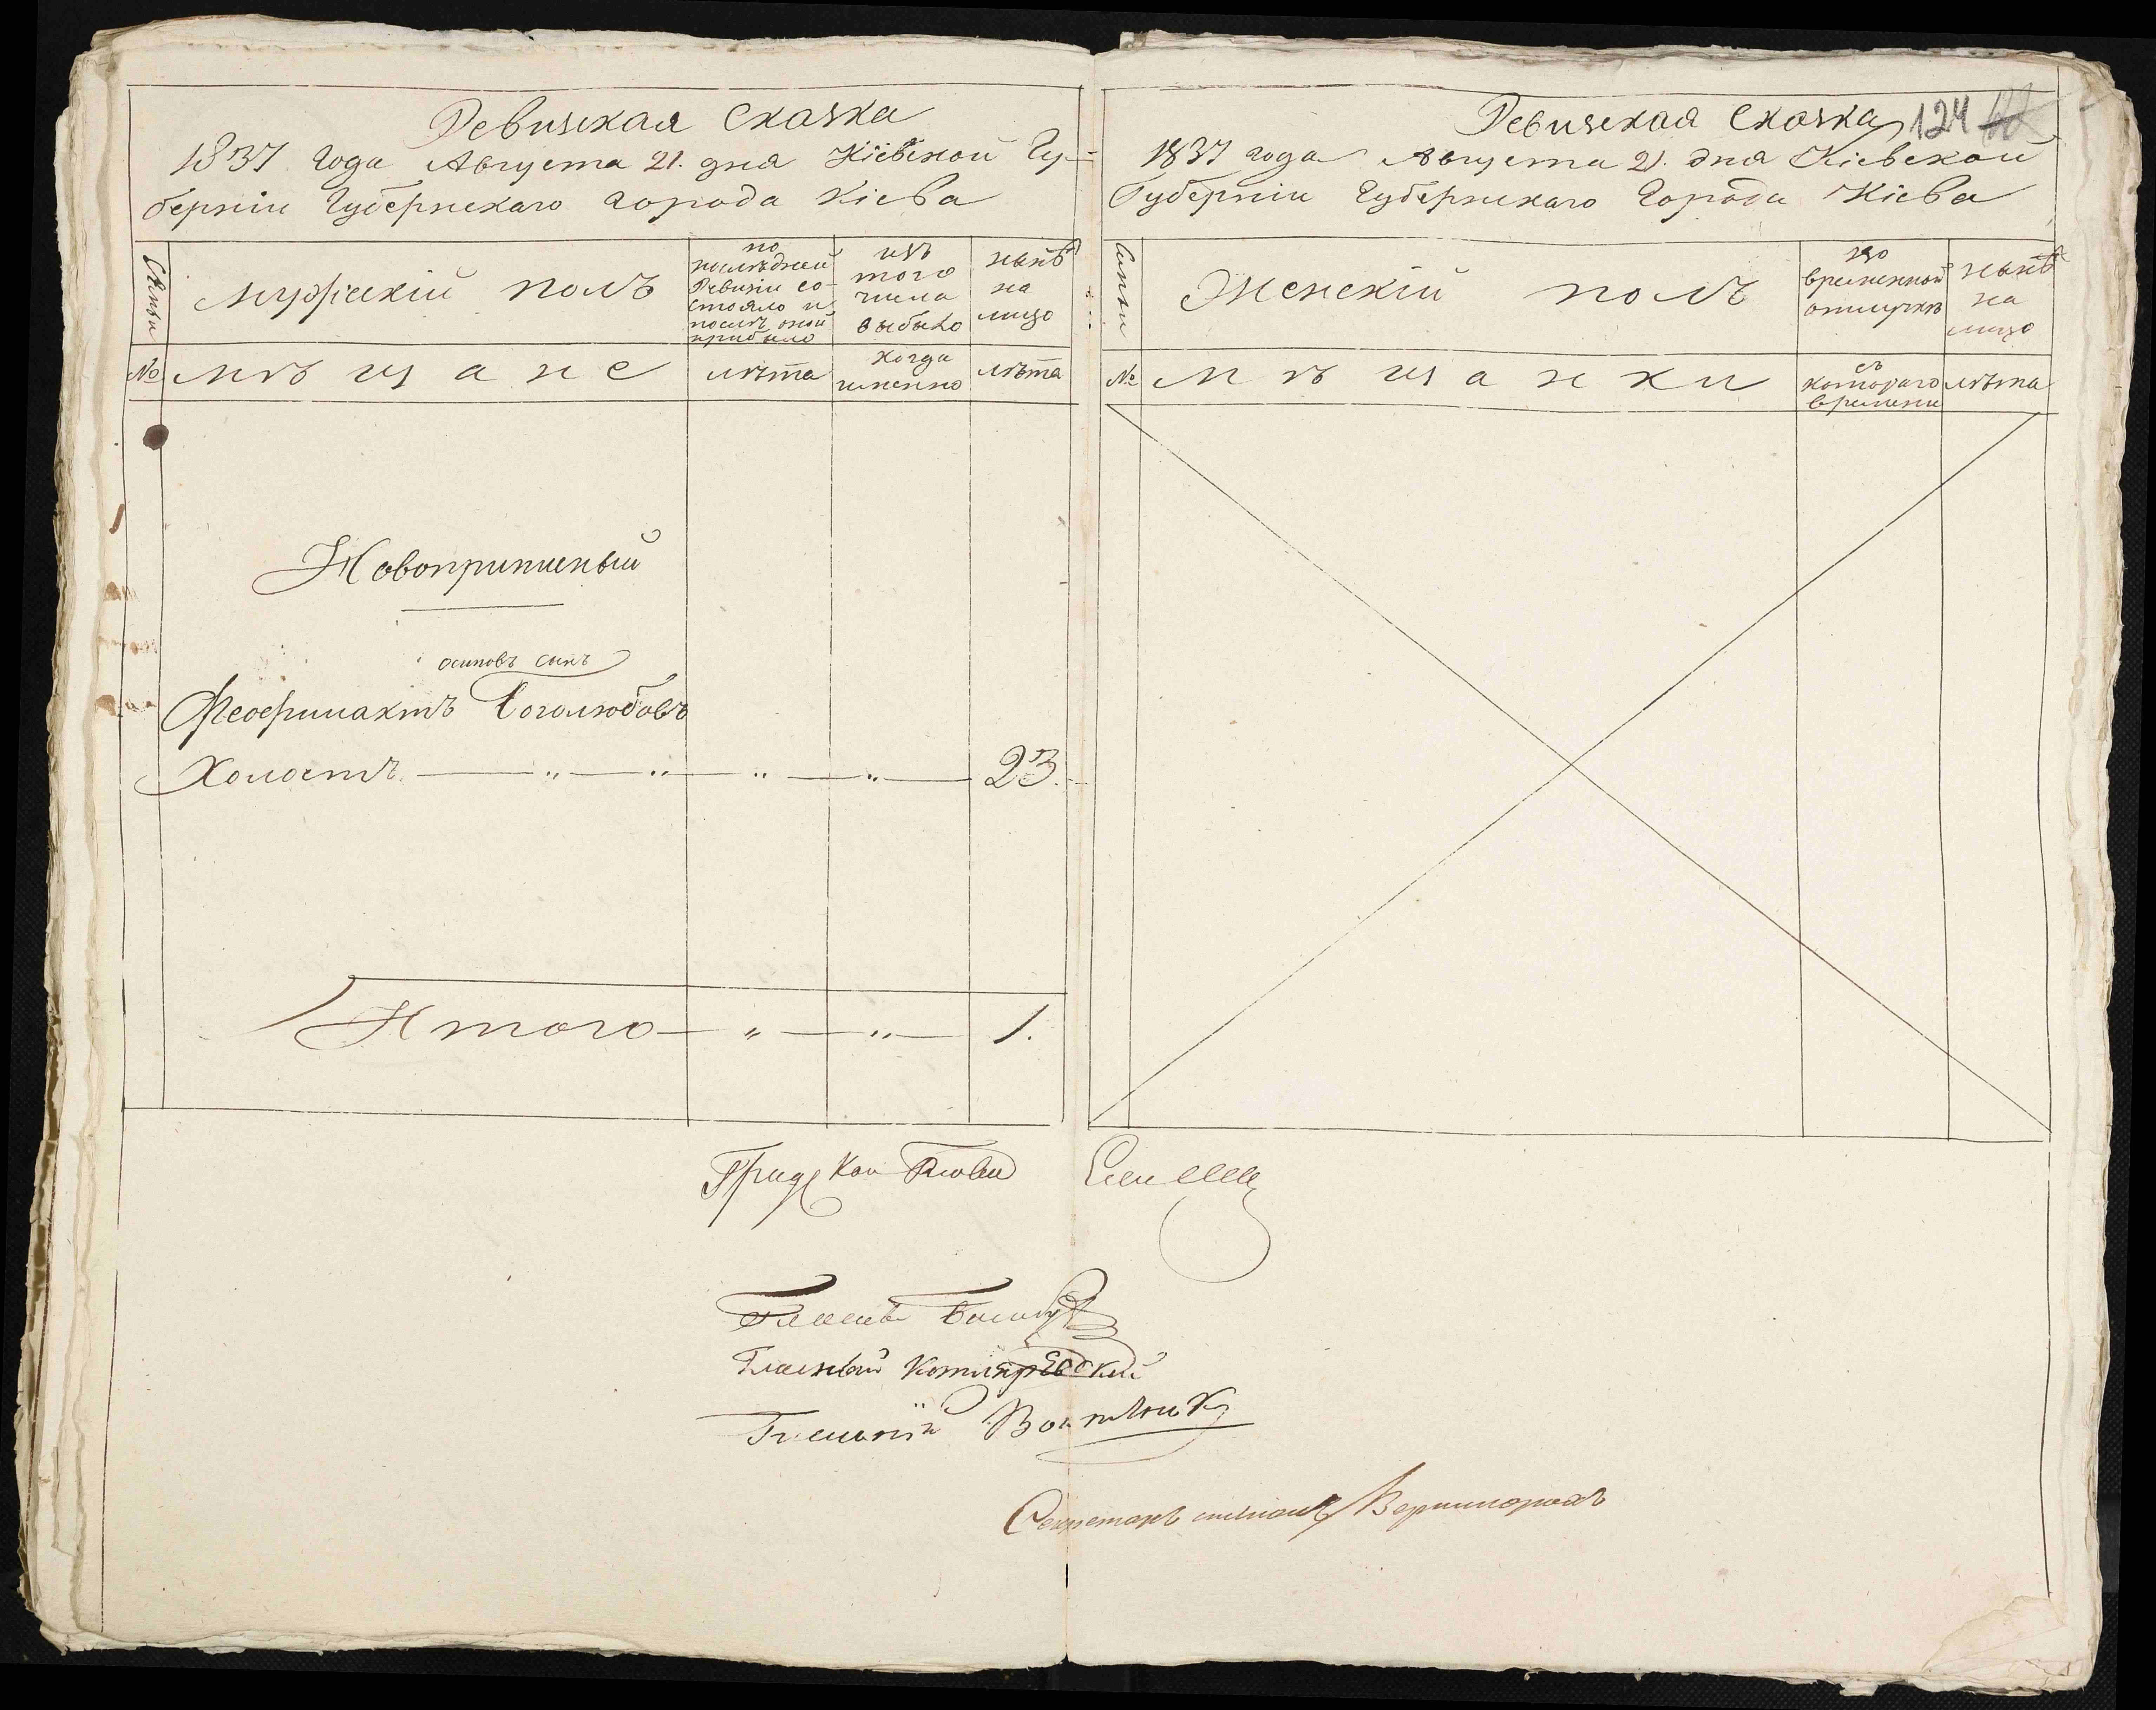 Ревизская Сказка
1837 года Августа 21. дня Кіевской Гу-
берніи Губернскаго города Кіева
Семьи
Мужескій полъ
по
последней
Ревизіи со-
стояло и
послѣ оной
прибыло
изъ
того
числа
выбыло
нынѣ
на
лицо
№
мѣщане
лѣта
когда
именно
лѣта
Новоприписный
осиповъ сынъ
Феофилактъ Боголюбовъ
Холостъ — „ — „ — „ — „ — 23.
Итого — „ — „ — 1.
Ревизская Сказка 124
1837 года Августа 21. дня Кіевской
Губерніи Губернскаго Города Кіева
Семьи
Женскій полъ
во
временной
отлучкѣ
нынѣ
на
лицо
№
мѣщанки
съ
котораго
времени
лѣта
Гласный
Гласный Котляревской
Гласный Войтенко
Секретарь